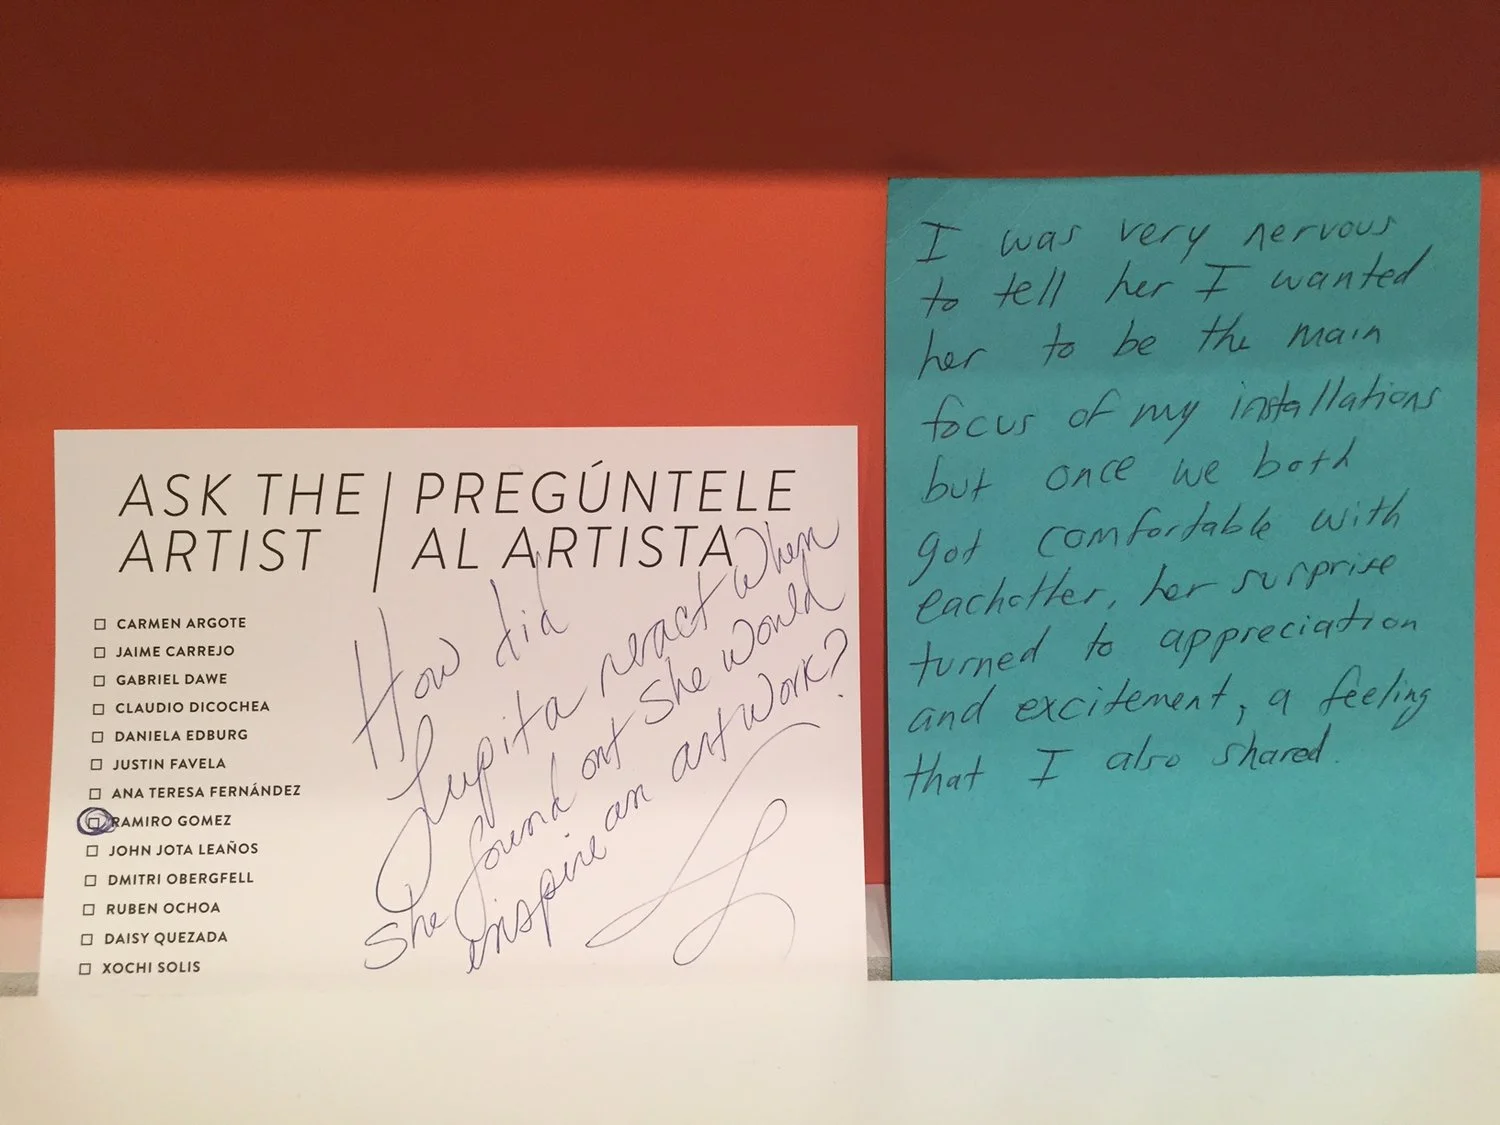 ASK THE
ARTIST
PREGÚNTELE
AL ARTISTA
CARMEN ARGOTE
JAIME CARREJO
GABRIEL DAWE
CLAUDIO DICOCHEA
DANIELA EDBURG
JUSTIN FAVELA
ANA TERESA FERNÁNDEZ
RAMIRO GOMEZ
JOHN JOTA LEAÑOS
DMITRI OBERGFELL
RUBEN OCHOA
DAISY QUEZADA
XOCHI SOLIS
How did
Lupita react when
she found out she would
inspire an artwork?
I was very nervous
to tell her I wanted
her to be the main
focus of my installations
but once we both
got comfortable with
eachother, her surprise
turned to appreciation
and excitement, a feeling
that I also shared.